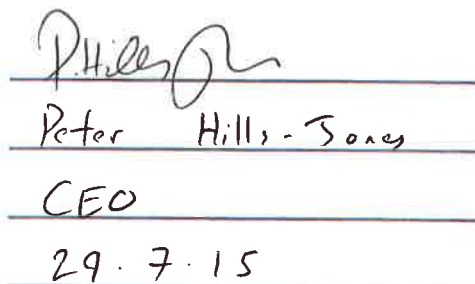 P.Hills
Peter Hills-Jones
CEO
29.7.15